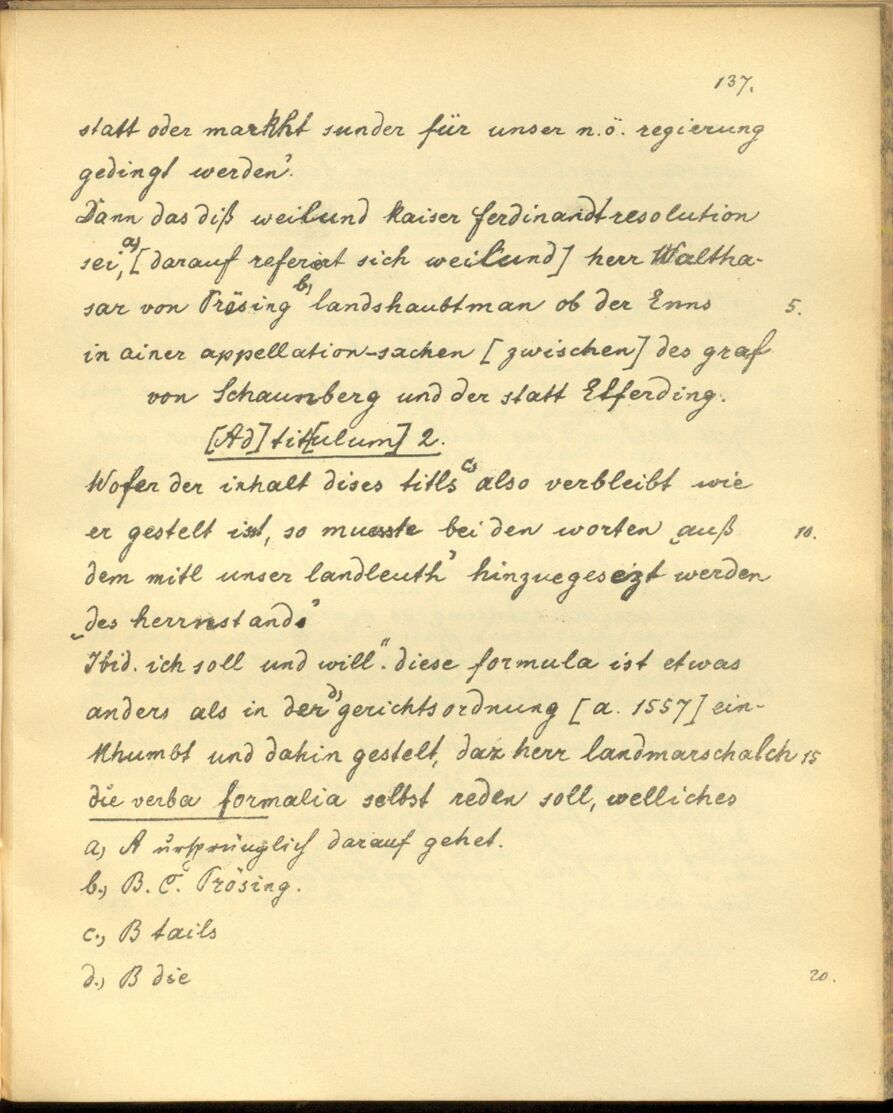 137.
statt oder markht sunder für unser n.ö. regierung
gedingt werden'.
Dann das diß weilund kaiser ferdinandt resolution
sei,a) [darauf referiert sich weilund] herr Waltha-
sar von Prösing b) landshaubtman ob der Enns 5.
in ainer appellation-sachen [zwischen] des graf
von Schaunberg und der statt Efferding.
[Ad] tit[ulum] 2.
Wofer der inhalt dises titls c) also verbleibt wie
er gestelt ist, so muesste bei den worten „auß 10.
dem mitl unser landleuth' hinzuegesezt werden
„des herrnstands'
Ibid. ich soll und will". diese formula ist etwas
anders als in der d) gerichtsordnung [a. 1557] ein-
khumbt und dahin gestelt, daz herr landmarschalch 15
die verba formalia selbst reden soll, welliches
a) A ursprünglich darauf gehet.
b.) B. C. Prösing.
c.) B tails
d.) B die 20.